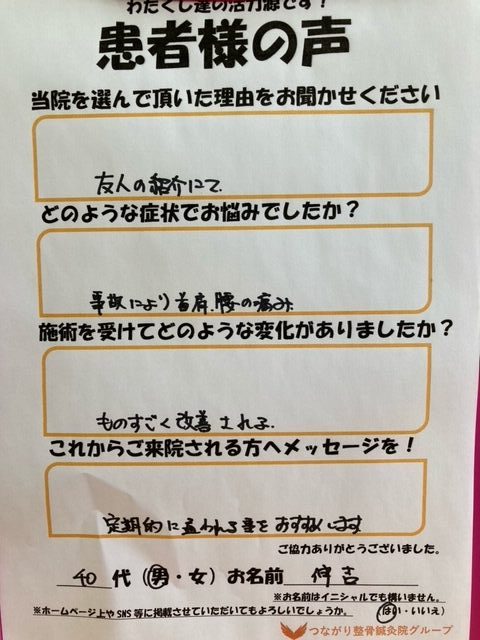 わたくし達の活力源です!
患者様の声
当院を選んで頂いた理由をお聞かせください
友人の紹介にて
どのような症状でお悩みでしたか?
事故により首肩.腰の痛み
施術を受けてどのような変化がありましたか?
ものすごく改善される.
これからご来院される方へメッセージを!
定期的に通われる事をおすすめします
ご協力ありがとうございました。
40 代(男・女)お名前
※お名前はイニシャルでも構いません。
※ホームページ上やSNS等に掲載させていただいてもよろしいでしょうか。 (はい・いいえ)
つながり整骨鍼灸院グループ